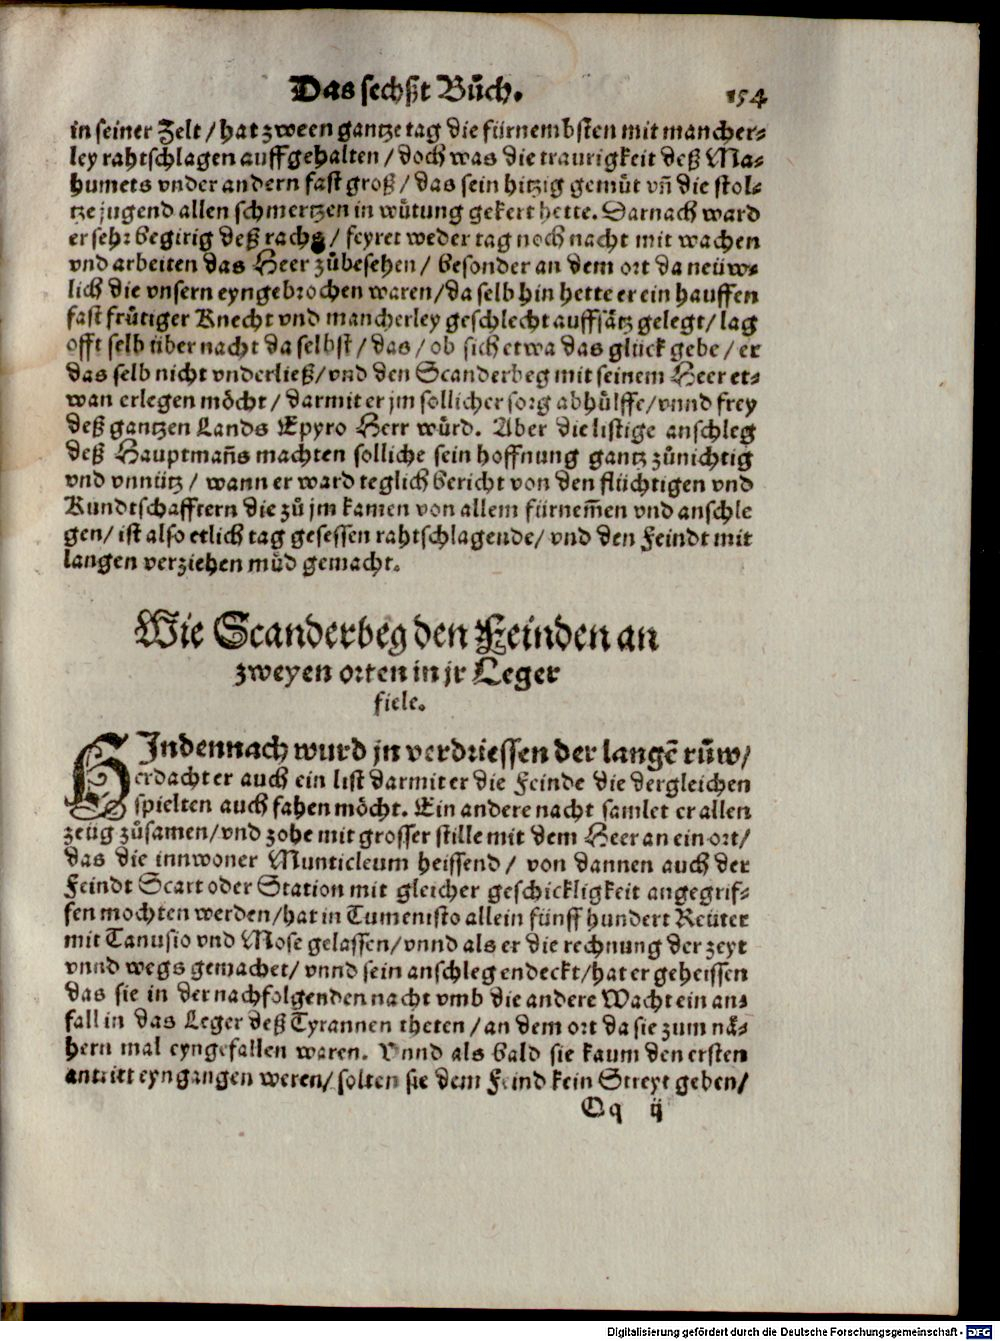 Das sechßt Bůch. 154
in seiner Zelt / hat zween gantze tag die fürnembsten mit mancher-
ley rahtschlagen auffgehalten / doch was die traurigkeit deß Ma-
humets vnder andern fast groß / das sein hitzig gemüt vñ die stol-
tze jugend allen schmertzen in wütung gekert hette. Darnach ward
er sehr begirig deß rachs / feyret weder tag noch nacht mit wachen
vnd arbeiten das Heer zůbesehen / besonder an dem ort da neüw-
lich die vnsern eyngebrochen waren / daselb hin hette er ein hauffen
fast frütiger Knecht vnd mancherley geschlecht auffsätz gelegt / lag
offt selb über nacht daselbst / das / ob sich etwa das glück gebe / er
das selb nicht vnderließ / vnd den Scanderbeg mit seinem Heer et-
wan erlegen möcht / darmit er jm sollicher sorg abhülffe / vnnd frey
deß gantzen Lands Epyro Herr würd. Aber die listige anschleg
deß Hauptmañs machten solliche sein hoffnung gantz zůnichtig
vnd vnnütz / wann er ward teglich bericht von den flüchtigen vnd
Kundtschafftern die zů jm kamen von allem fürnem̃en vnd anschle
gen / ist also etlich tag gesessen rahtschlagende / vnd den Feindt mit
langen verziehen müd gemacht.
Wie Scanderbeg den Feinden an
zweyen orten in jr Leger
fiele.
HIndennach wurd jn verdriessen der langē růw /
erdacht er auch ein list darmit er die Feinde die dergleichen
spielten auch fahen möcht. Ein andere nacht samlet er allen
zeüg zůsamen / vnd zohe mit grosser stille mit dem Heer an ein ort /
das die innwoner Munticleum heissend / von dannen auch der
Feindt Scart oder Station mit gleicher geschickligkeit angegrif-
fen mochten werden / hat in Tumenisto allein fünff hundert Reüter
mit Tanusio vnd Mose gelassen / vnnd als er die rechnung der zeyt
vnnd wegs gemachet / vnnd sein anschleg endeckt / hat er geheissen
das sie in der nachfolgenden nacht vmb die andere Wacht ein an-
fall in das Leger deß Tyrannen theten / an dem ort da sie zum nä-
hern mal eyngefallen waren. Vnnd als bald sie kaum den ersten
antritt eyngangen weren / solten sie dem Feind kein Streyt geben /
Qq ij
Digitalisierung gefördert durch die Deutsche Forschungsgemeinschaft - DFG